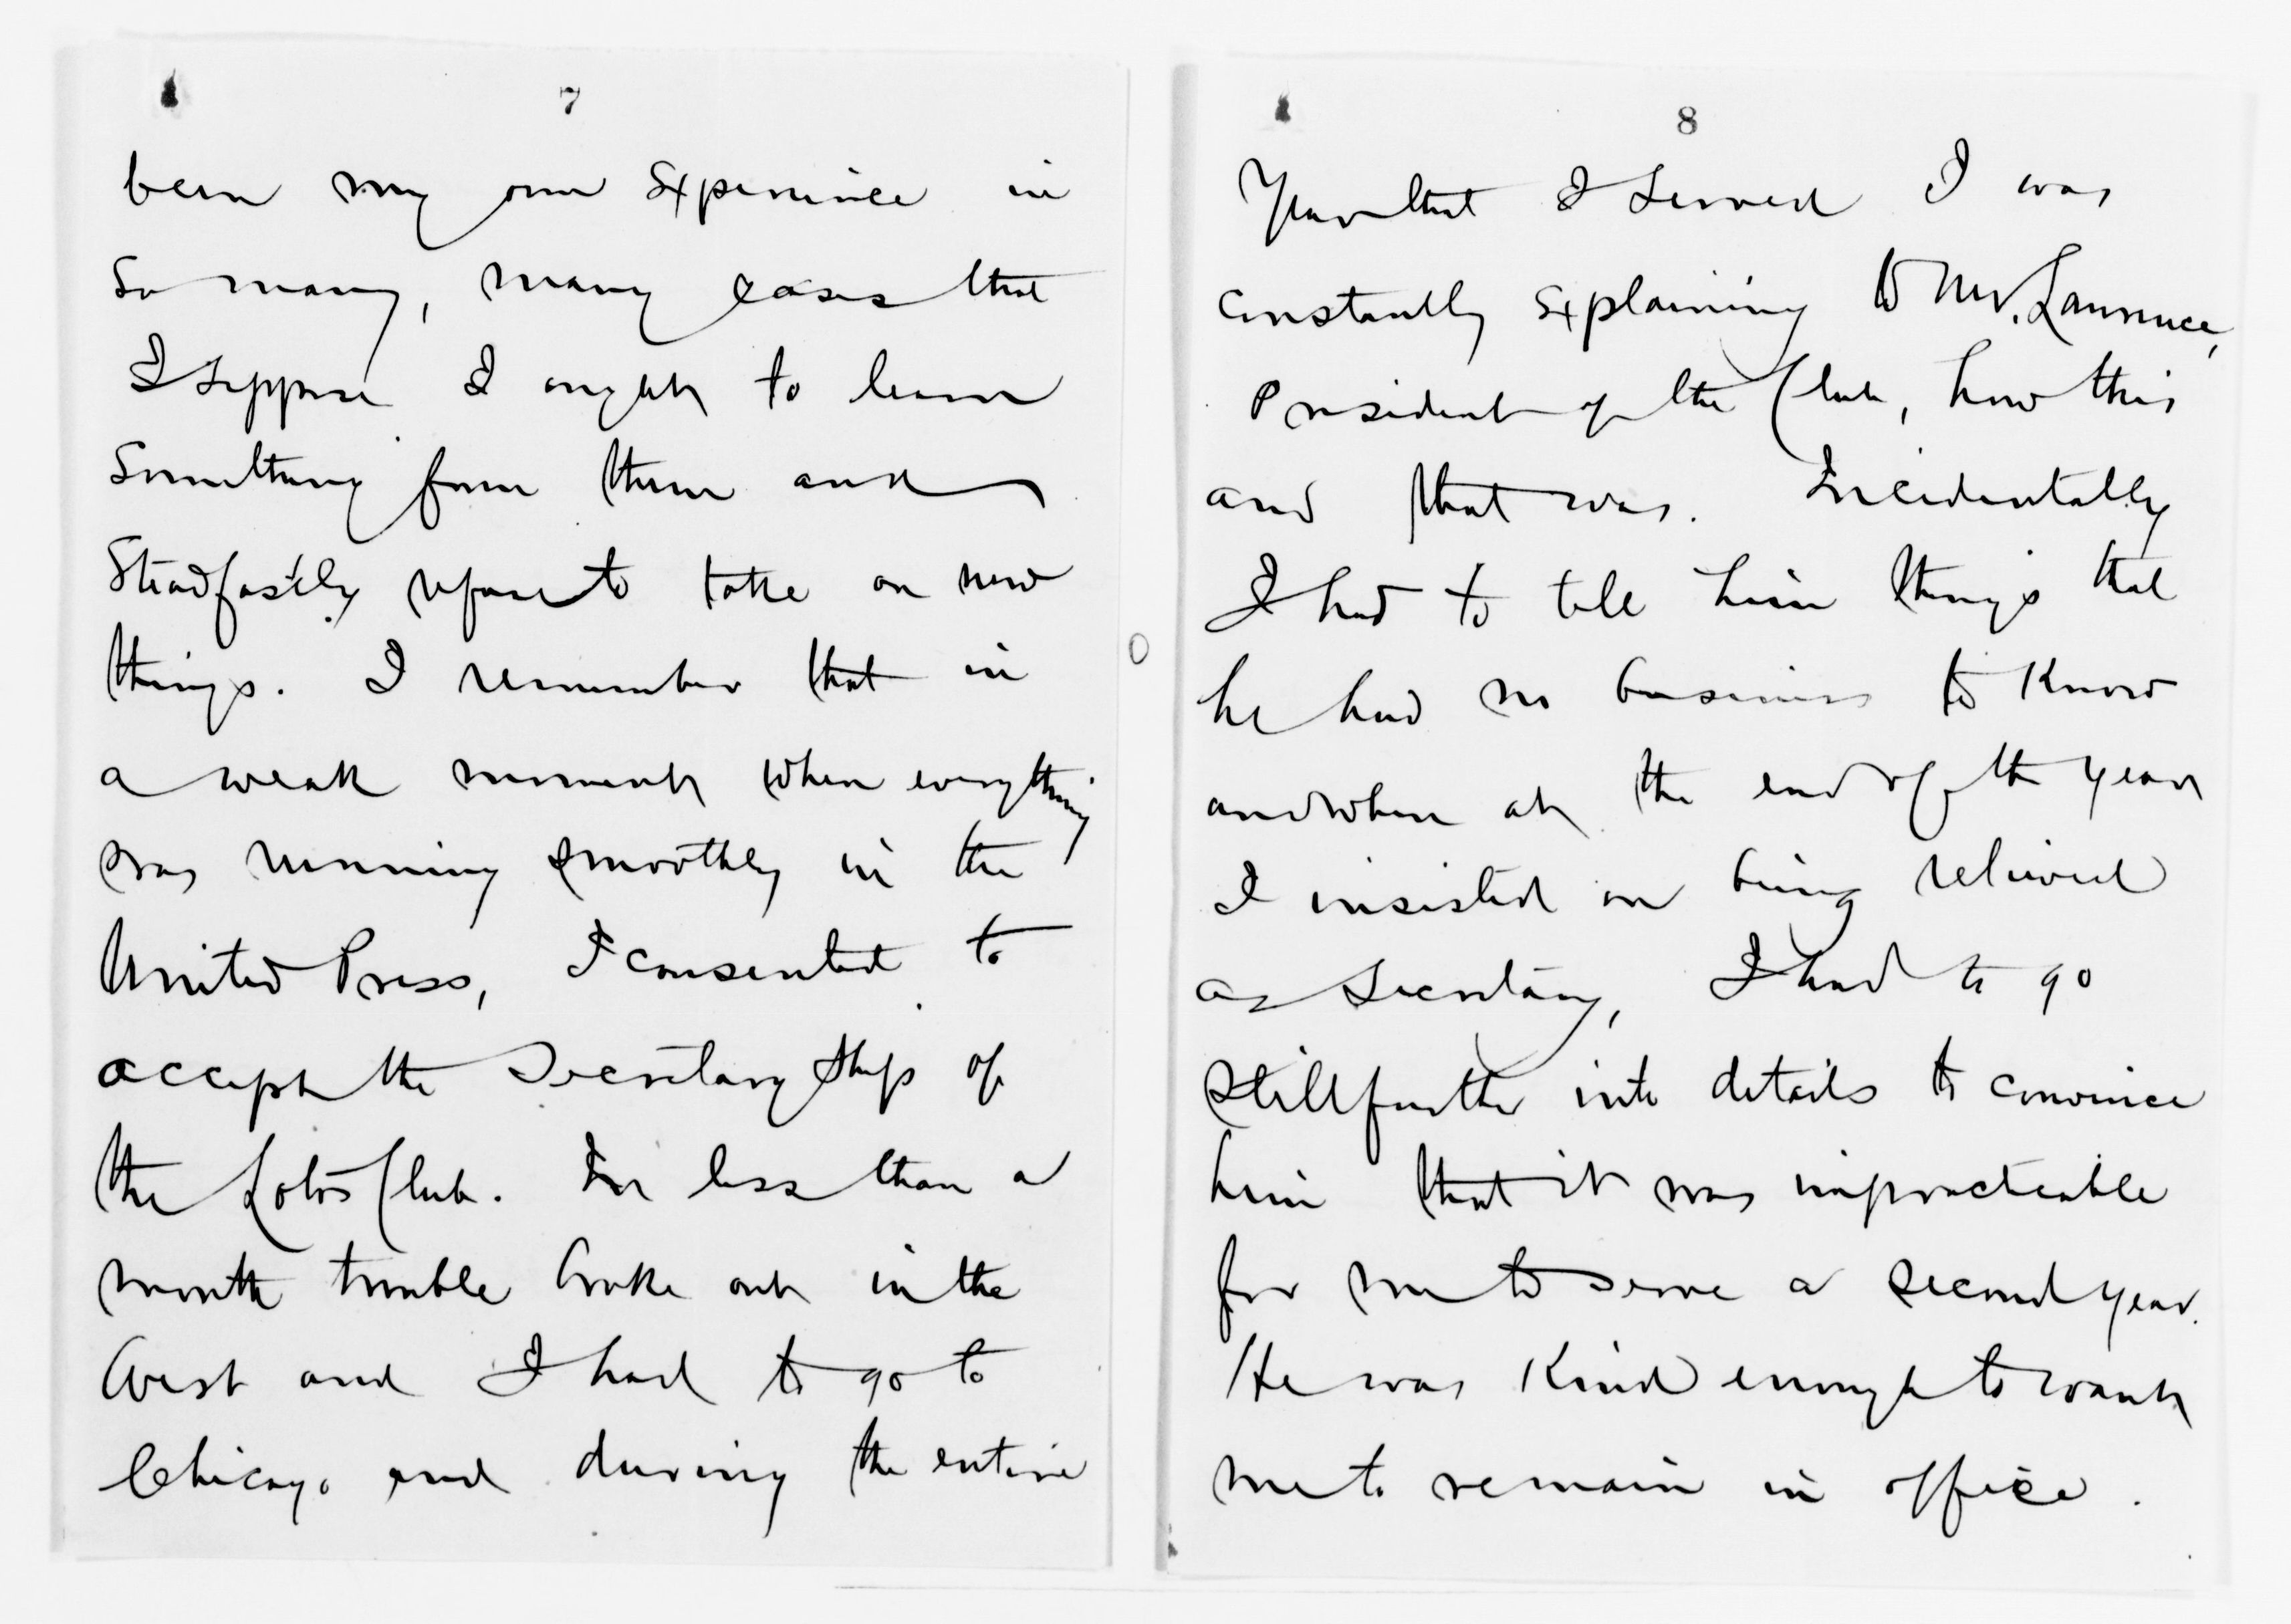 7
been my own experience in
so many, many cases that
I suppose I ought to learn
something from them and
steadfastly refuse to take on new
things. I remember that in
a weak moment when everything
was running smoothly in the
United Press, I consented to
accept the Secretaryship of
the Lotos Club. In less than a
month trouble broke out in the
West and I had to go to
Chicago and during the entire
8
Year that I served I was
constantly explaining to Mr. Lawrence,
President of the Club, how this
and that was. Incidentally
I had to tell him things that
he had no business to know
and when at the end of the year
I insisted on being relieved
as Secretary, I had to go
still further into details to convince
him that it was impracticable
for me to serve a second year.
He was kind enough to want
me to remain in office.